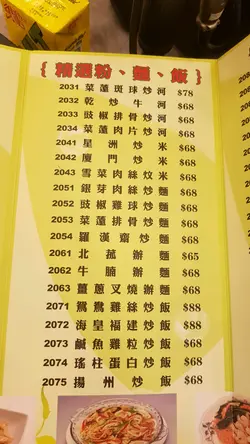 { 精選粉、麵、飯 }
2031 菜薳斑球炒河 $78
2032 乾炒牛河 $68
2033 豉椒排骨炒河 $68
2034 菜薳肉片炒河 $68
2041 星洲炒米 $68
2042 廈門炒米 $68
2043 雪菜肉絲炆米 $68
2051 銀芽肉絲炒麵 $68
2052 豉椒雞球炒麵 $68
2053 菜薳排骨炒麵 $68
2054 羅漢齋炒麵 $68
2061 北菰辦麵 $65
2062 牛腩辦麵 $68
2063 薑蔥叉燒辦麵 $68
2071 鴛鴦雞絲炒飯 $88
2072 海皇福建炒飯 $88
2073 鹹魚雞粒炒飯 $68
2074 瑤柱蛋白炒飯 $68
2075 揚州炒飯 $68